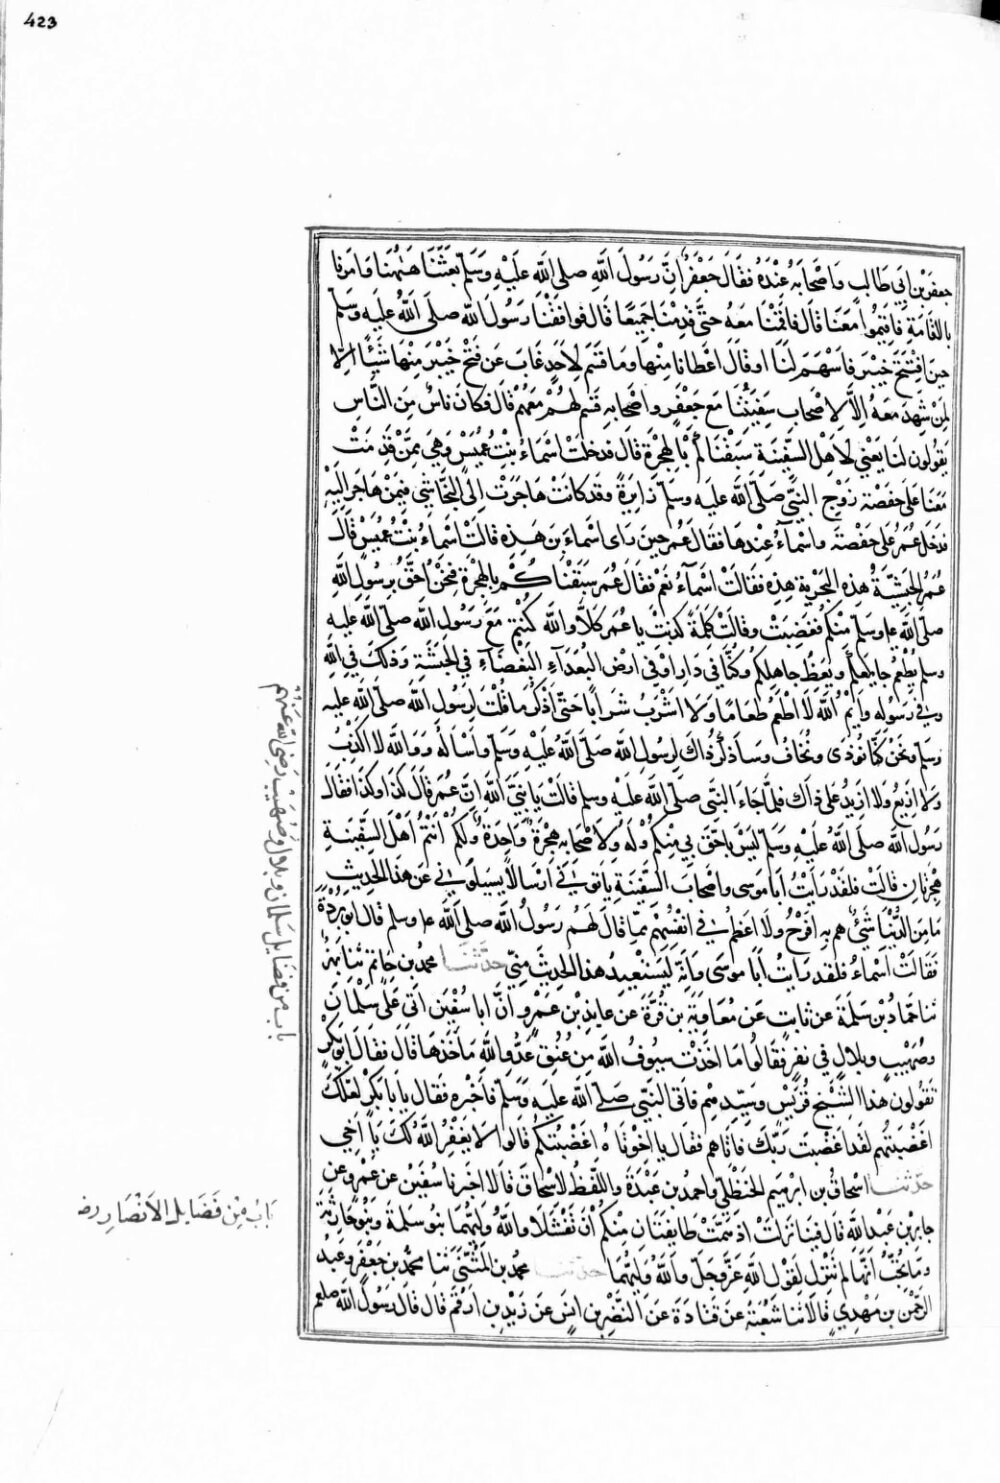 423
جعفر بن ابي طالب واصحابه عنده فقال جعفر ان رسول الله صلى الله عليه وسلم بعثنا ههنا وامرنا
بالاقامة فاقيموا معنا قال فاقمنا معه حتى قدمنا جميعا قال فوافقنا رسول الله صلى الله عليه وسلم
حين افتتح خيبر فاسهم لنا او قال اعطانا منها وما قسم لاحد غاب عن فتح خيبر منها شيئا الا
لمن شهد معه الا لاصحاب سفينتنا مع جعفر واصحابه قسم لهم معهم قال فكان ناس من الناس
يقولون لنا يعني لاهل السفينة سبقناكم بالهجرة قال فدخلت اسماء بنت عميس وهي ممن قدمت
معنا على حفصة زوج النبي صلى الله عليه وسلم زايرة وقد كانت هاجرت الى النجاشي فيمن هاجر اليه
فدخل عمر على حفصة واسماء عندها فقال عمر حين راى اسماء من هذه قالت اسماء بنت عميس قال
عمر الحبشية هذه البحرية هذه فقالت اسماء نعم فقال عمر سبقناكم بالهجرة فنحن احق برسول الله
صلى الله عليه وسلم منكم فغضبت وقالت كلمة كذبت يا عمر كلا والله كنتم مع رسول الله صلى الله عليه
وسلم يطعم جايعكم ويعظ جاهلكم وكنا في دار او في ارض البعداء البغضاء في الحبشة وذلك في الله
وفي رسوله وايم الله لا اطعم طعاما ولا اشرب شرابا حتى اذكر ما قلت لرسول الله صلى الله عليه
وسلم ونحن كنا نوذى ونخاف وساذكر ذاك لرسول الله صلى الله عليه وسلم واساله ووالله لا اكذب
ولا ازيغ ولا ازيد على ذاك فلما جاء النبي صلى الله عليه وسلم قالت يا نبي الله ان عمر قال كذا وكذا فقال
رسول الله صلى الله عليه وسلم ليس باحق بي منكم وله ولاصحابه هجرة واحدة ولكم انتم اهل السفينة
هجرتان قالت فلقد رايت ابا موسى واصحاب السفينة ياتوني ارسالا يسيلوني عن هذا الحديث
ما من الدنيا شيئ هم به افرح ولا اعظم في انفسهم مما قال لهم رسول الله صلى الله عليه وسلم قال ابو بردة
فقالت اسماء فلقد رايت ابا موسى وانه ليستعيد هذا الحديث مني حدثنا محمد بن حاتم ثنا بهز
ثنا حماد بن سلمة عن ثابت عن معاوية بن قرة عن عايذ بن عمرو ان ابا سفين اتى على سلمان
وصهيب وبلال في نفر فقالوا ما اخذت سيوف الله من عنق عدو الله ماخذها قال فقال ابو بكر
تقولون هذا لشيخ قريش وسيدهم فاتى النبي صلى الله عليه وسلم فاخبره فقال يا با بكر لعلك
اغضبتهم لقد اغضبت ربك فاتاهم فقال يا اخوتاه اغضبتكم قالوا لا يغفر الله لك يا اخي
حدثنا اسحاق بن ابرهيم الحنظلي واحمد بن عبدة واللفظ لاسحاق قالا اخبرنا سفين عن عمرو عن
جابر بن عبد الله قال فينا نزلت اذ همت طايفتان منكم ان تفشلا والله وليهما بنو سلمة وبنو حارثة
وما يحب انها لم تنزل لقول الله عز وجل والله وليهما حدثنا محمد بن المثنى ثنا محمد بن جعفر وعبد
الرحمن بن مهدي قالا ثنا شعبة عن قتادة عن النضر بن انس عن زيد بن ارقم قال قال رسول الله صلعم
باب من فضايل سلمان وبلال وصهيب رضي الله عنهم
باب من فضايل الانصار رضه